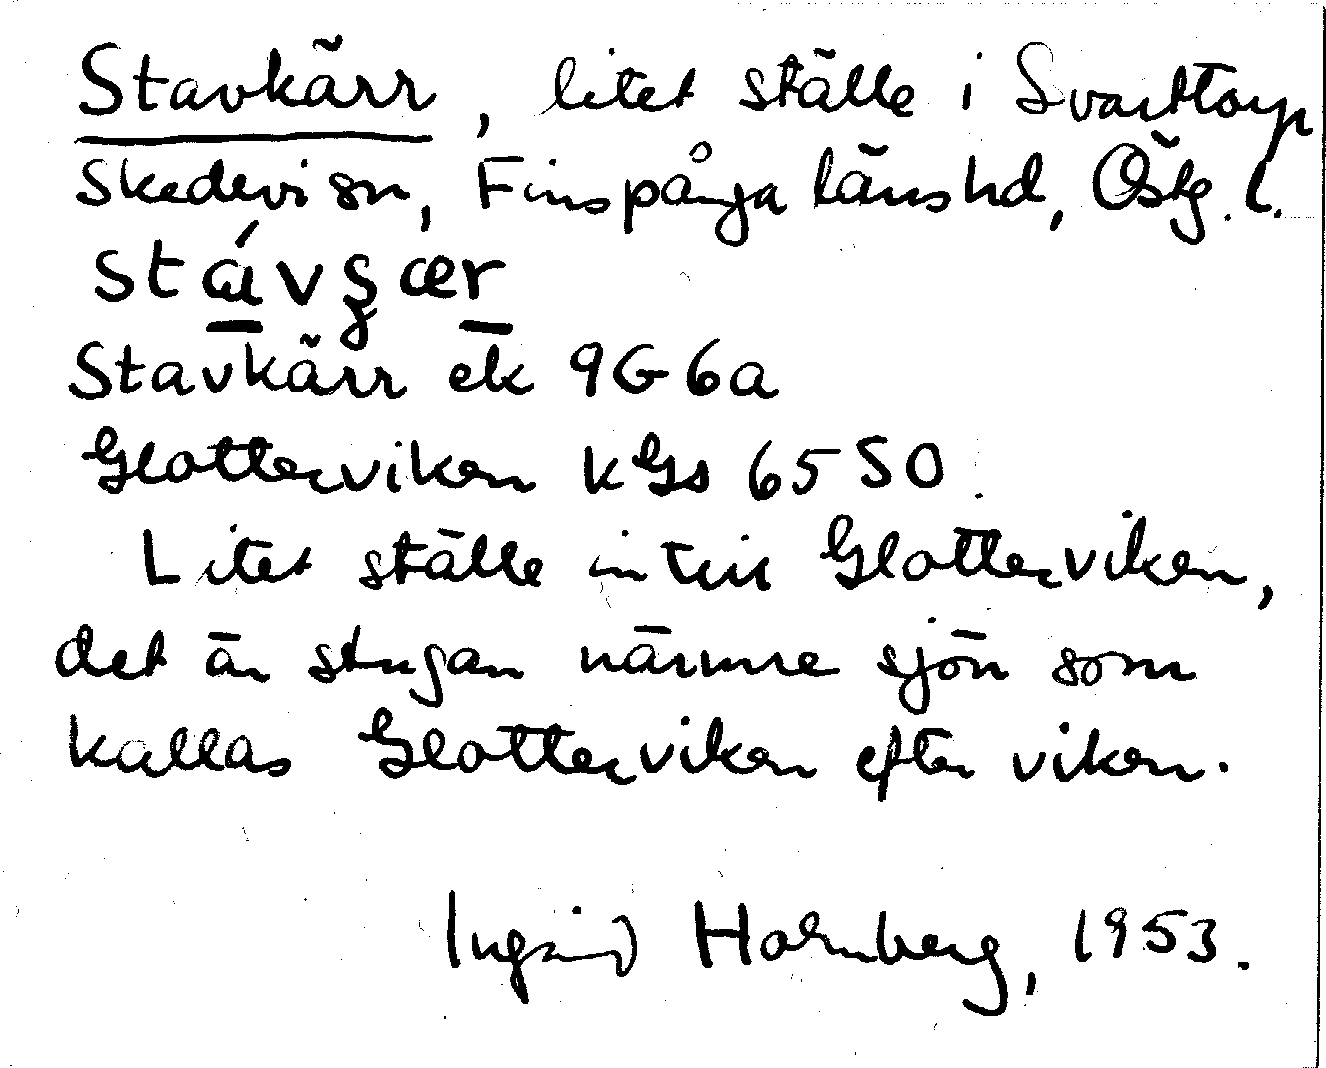 Stavkärr, litet ställe i Svarttorp
Skedevi sn, Finspånga läns hd, Östg. l.
stávʂær
Stavkärr ek 9G6a
Glotterviken kGs 65 SO
Litet ställe intill Glotterviken,
det är stugan närmre sjön som
kallas Glotterviken efter viken.
Ingrid Holmberg, 1953.